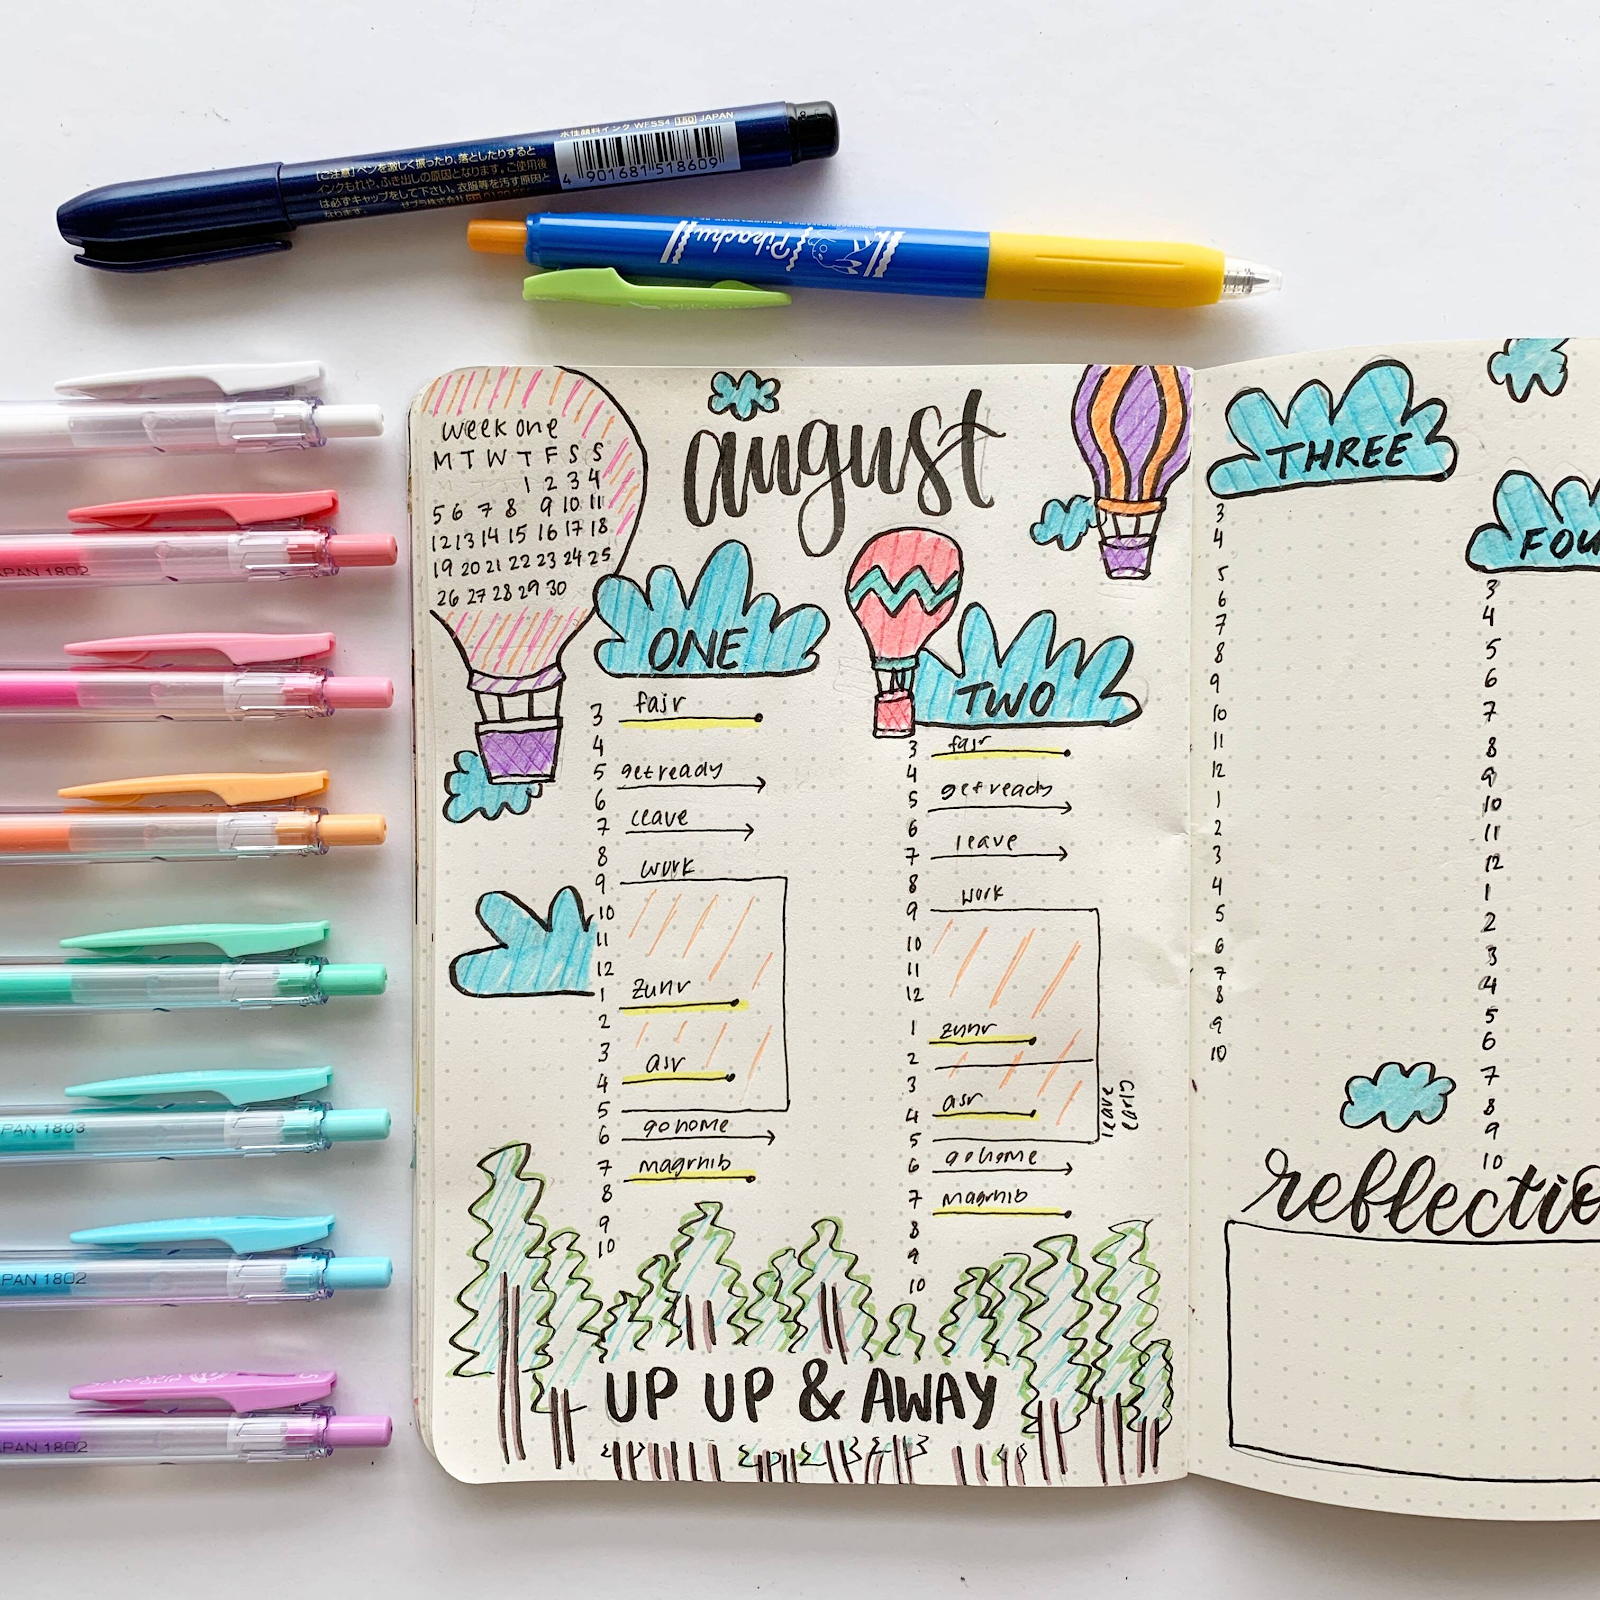 水性顔料インク WFSS4 150 JAPAN
4 901681 518609
【ご注意】ペンを激しく振ったり、落としたりすると
インクもれや、ふき出しの原因となります。ご使用後
は必ずキャップをして下さい。衣服等を汚す原因と
なります。 ゼブラ株式会社
Pikachu
JAPAN 1802
PAN 1803
PAN 1802
PAN 1802
week one
M T W T F S S
1 2 3 4
5 6 7 8 9 10 11
12 13 14 15 16 17 18
19 20 21 22 23 24 25
26 27 28 29 30
august
ONE
3 fajr
4
5 get ready
6
7 leave
8
9 work
10
11
12
1 zuhr
2
3
4 asr
5
6 go home
7 maghrib
8
9
10
TWO
3 fajr
4
5 get ready
6
7 leave
8
9 work
10
11
12
1 zuhr
2
3
4 asr
leave early
5
6 go home
7 maghrib
8
9
10
UP UP & AWAY
THREE
3
4
5
6
7
8
9
10
11
12
1
2
3
4
5
6
7
8
9
10
FOU
3
4
5
6
7
8
9
10
11
12
1
2
3
4
5
6
7
8
9
10
reflectio